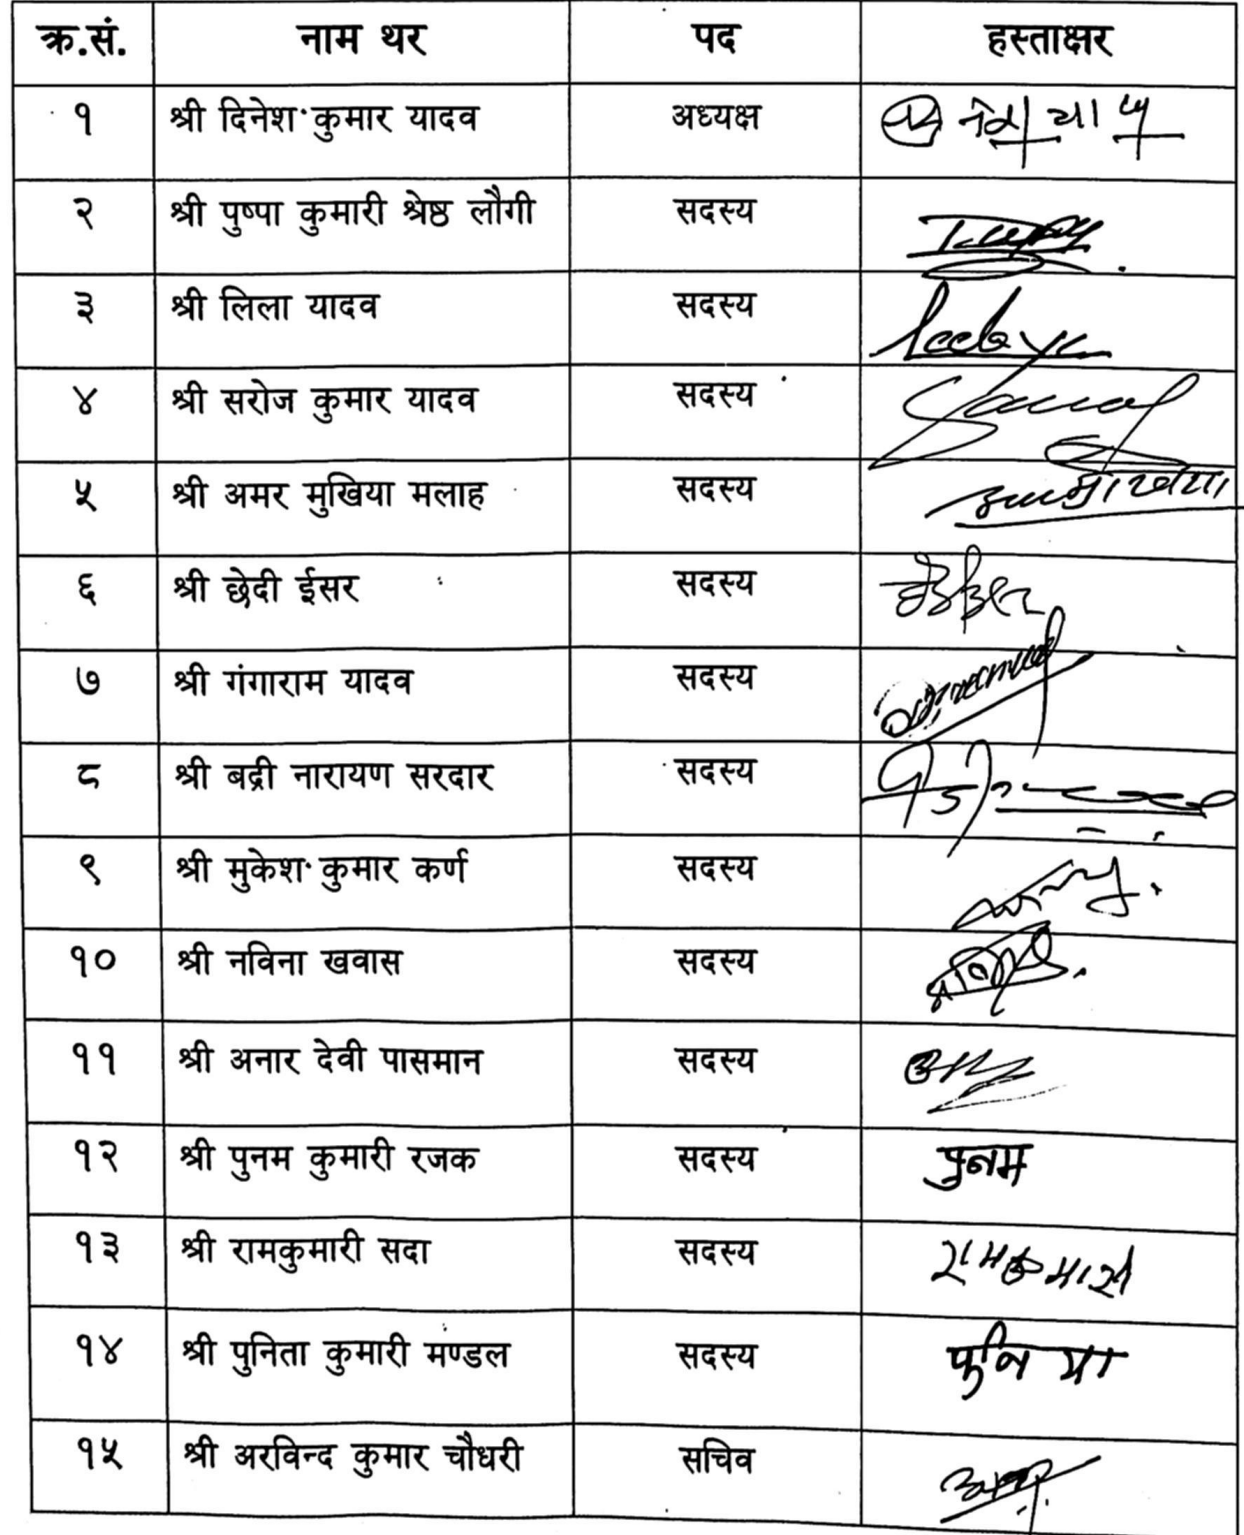 क्र.सं. नाम थर पद हस्ताक्षर
१ श्री दिनेश कुमार यादव अध्यक्ष
२ श्री पुष्पा कुमारी श्रेष्ठ लौगी सदस्य
३ श्री लिला यादव सदस्य
४ श्री सरोज कुमार यादव सदस्य
५ श्री अमर मुखिया मलाह सदस्य
६ श्री छेदी ईसर सदस्य
७ श्री गंगाराम यादव सदस्य
८ श्री बद्री नारायण सरदार सदस्य
९ श्री मुकेश कुमार कर्ण सदस्य
१० श्री नविना खवास सदस्य
११ श्री अनार देवी पासमान सदस्य
१२ श्री पुनम कुमारी रजक सदस्य पुनम
१३ श्री रामकुमारी सदा सदस्य
१४ श्री पुनिता कुमारी मण्डल सदस्य
१५ श्री अरविन्द कुमार चौधरी सचिव